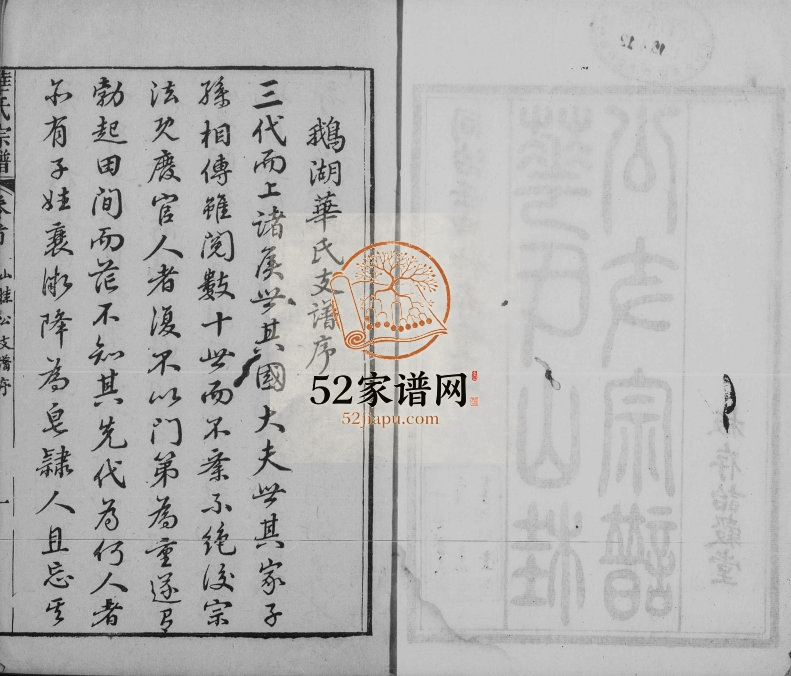 公支宗譜
華氏山桂
鵝湖華氏支譜序
三代而上諸侯世其國大夫世其家子
孫相傳雖閱數十世而不絕後宗
法既廢官人者復不以門第為重遂有
勃起田間而茫不知其先代為何人者
亦有子姓衰微降為皂隸人且忘其
華氏宗譜 卷首 山桂公支譜序 一
52家谱网
52jiapu.com